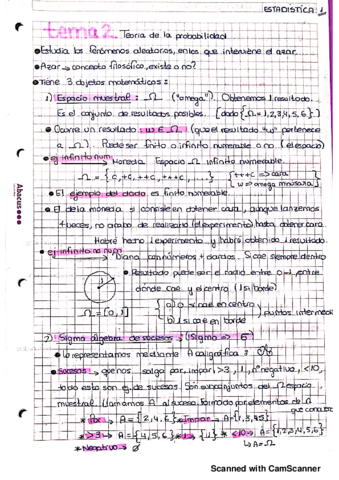 ESTADÍSTICA 1
tema 2. Teoría de la probabilidad
• Estudia los fenómenos aleatorios, en los que interviene el azar.
• Azar → concepto filosófico, existe o no?
• Tiene 3 objetos matemáticos:
1) Espacio muestral: Ω ("omega"). Obtenemos 1 resultado.
Es el conjunto de resultados posibles. [dado {Ω=1,2,3,4,5,6}]
• Ocurre un resultado: w ∈ Ω (que el resultado "w" pertenece
a Ω). Puede ser finito o infinito numerable o no. (el espacio)
• ej infinito num. Moneda. Espacio Ω infinito numerable.
Ω = {c, +c, ++c, +++c, ...} {+++c → cara
w → omega minúscula}
• El ejemplo del dado es finito numerable.
• El de la moneda → consiste en obtener cara, aunque lancemos
4 veces, no acabo de realizar (el experimento) hasta obtener cara.
Habré hecho 1 experimento y habré obtenido 1 resultado.
• ej infinito no num Diana con números + dardos. Si cae siempre dentro
• Resultado puede ser el radio entre 0-1, entre
dónde cae y el centro (1 si borde)
Ω = [0,1] {a) 0 si cae en centro
b) 1 si cae en borde} puntos intermedios
2) Sigma álgebra de sucesos: (Sigma => б)
• Lo representamos mediante A caligráfica:
• Sucesos → que nos salga par, impar, >3, 1, nº negativo, <10,
todo esto son ej. de sucesos. Son subconjuntos del Ω espacio
muestral. Llamamos A al suceso, formado por elementos de Ω
que
* Par → A={2,4,6} * Impar → A={1,3,5}
* >3 → A={4,5,6} * 1 → {1} * <10 → A={1,2,3,4,5,6}
* Negativo → Ø ↳ A=Ω
Abacus
Scanned with CamScanner